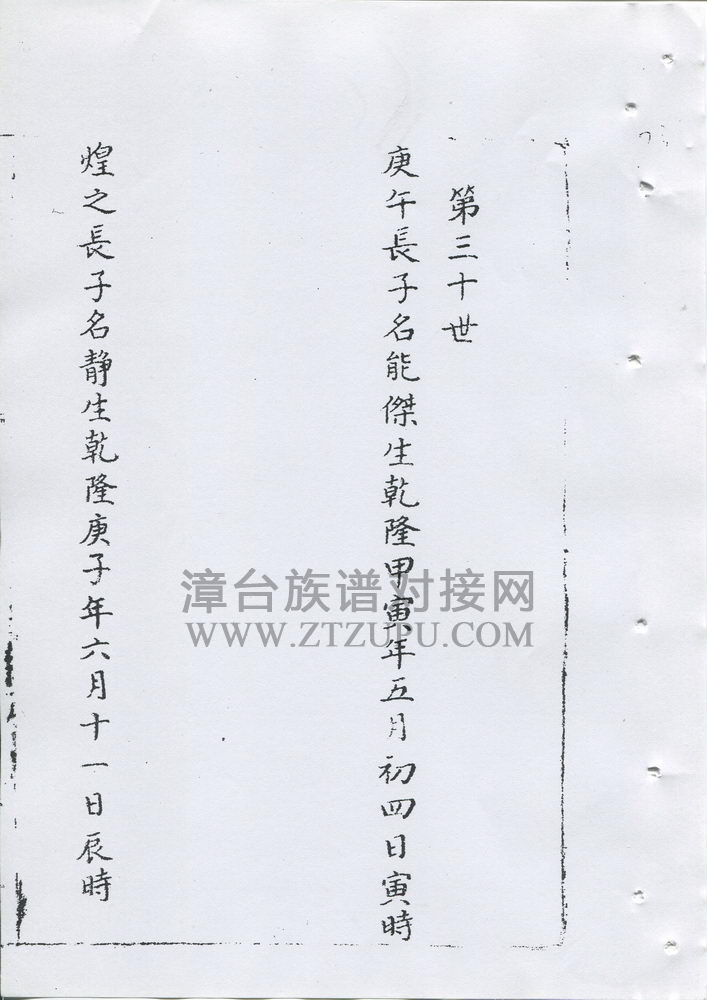 第三十世
庚午長子名能傑生乾隆甲寅年五月初四日寅時
煌之長子名靜生乾隆庚子年六月十一日辰時
漳台族谱对接网
WWW.ZTZUPU.COM